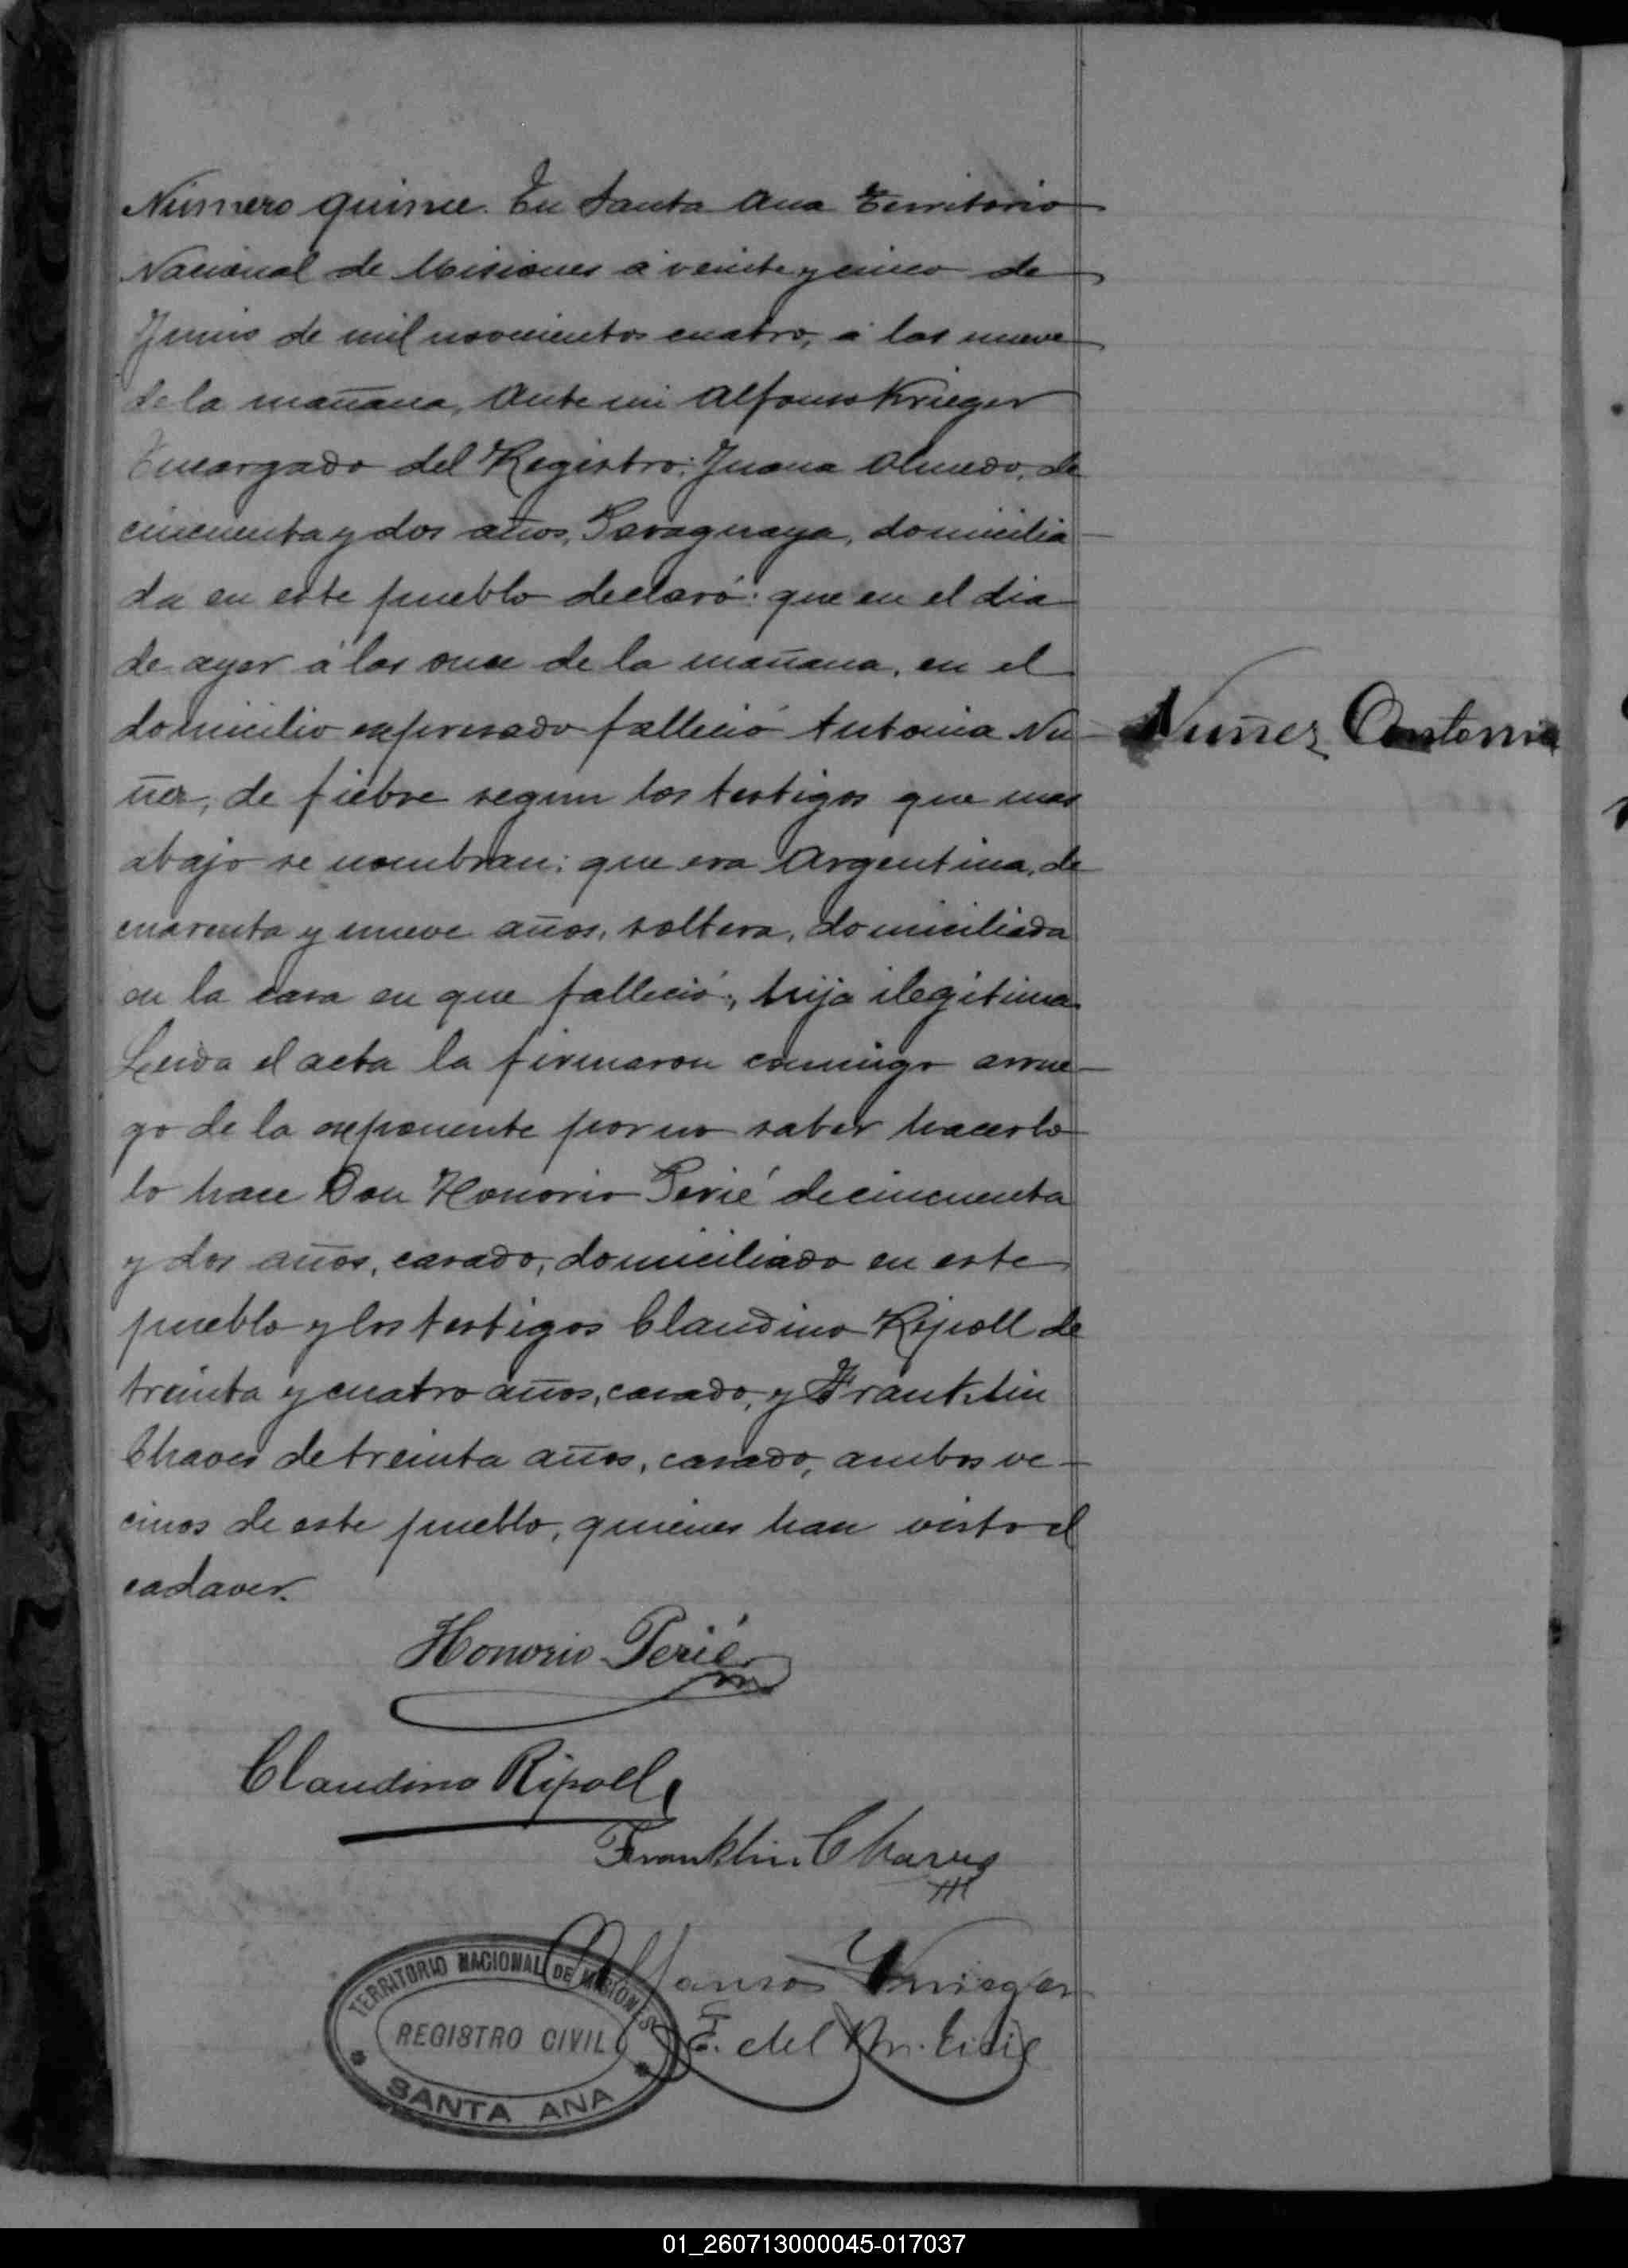 Número quince. En Santa Ana Territorio
Nacional de Misiones á veinte y cinco de
Junio de mil novecientos cuatro, á las nueve
de la mañana, Ante mi Alfonso Krieger
Encargado del Registro: Juana Olmedo, de
cincuenta y dos años, Paraguaya, domicilia
da en este pueblo declaró: que en el dia
de ayer á las once de la mañana, en el
domicilio expresado falleció Antonia Nu
ñez, de fiebre segun los testigos que mas
abajo se nombran: que era Argentina, de
cuarenta y nueve años, soltera, domiciliada
en la casa en que falleció; hija ilegítima
Leida el acta la firmaron conmigo arrue-
go de la exponente por no saber hacerlo
lo hace Don Honorio Perié de cincuenta
y dos años, casado, domiciliado en este
pueblo y los testigos Claudino Ripoll de
treinta y cuatro años, casado, y Franklin
Chaves de treinta años, casado, ambos ve-
cinos de este pueblo, quienes han visto el
cadaver.
Nuñez Antonia
Honorio Perié
Claudino Ripoll
Franklin Chaves
Alfonso Krieger
E. del Civil
TERRITORIO NACIONAL DE MISIONES
REGISTRO CIVIL
SANTA ANA
01_260713000045-017037